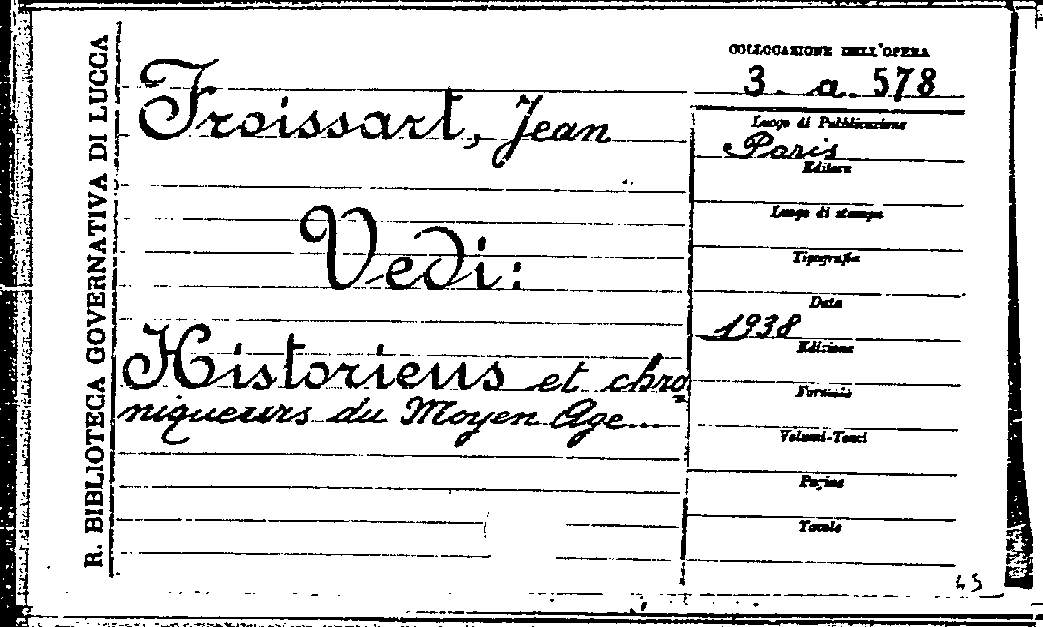 R. BIBLIOTECA GOVERNATIVA DI LUCCA
Froissart, Jean
Vedi:
Historiens et chro
niqueurs du Moyen Age...
COLLOCAZIONE DELL'OPERA
3. a. 578
Luogo di Pubblicazione
Paris
Editore
Luogo di stampa
Tipografia
Data
1938
Edizione
Formato
Volumi-Tomi
Pagine
Tavole
45